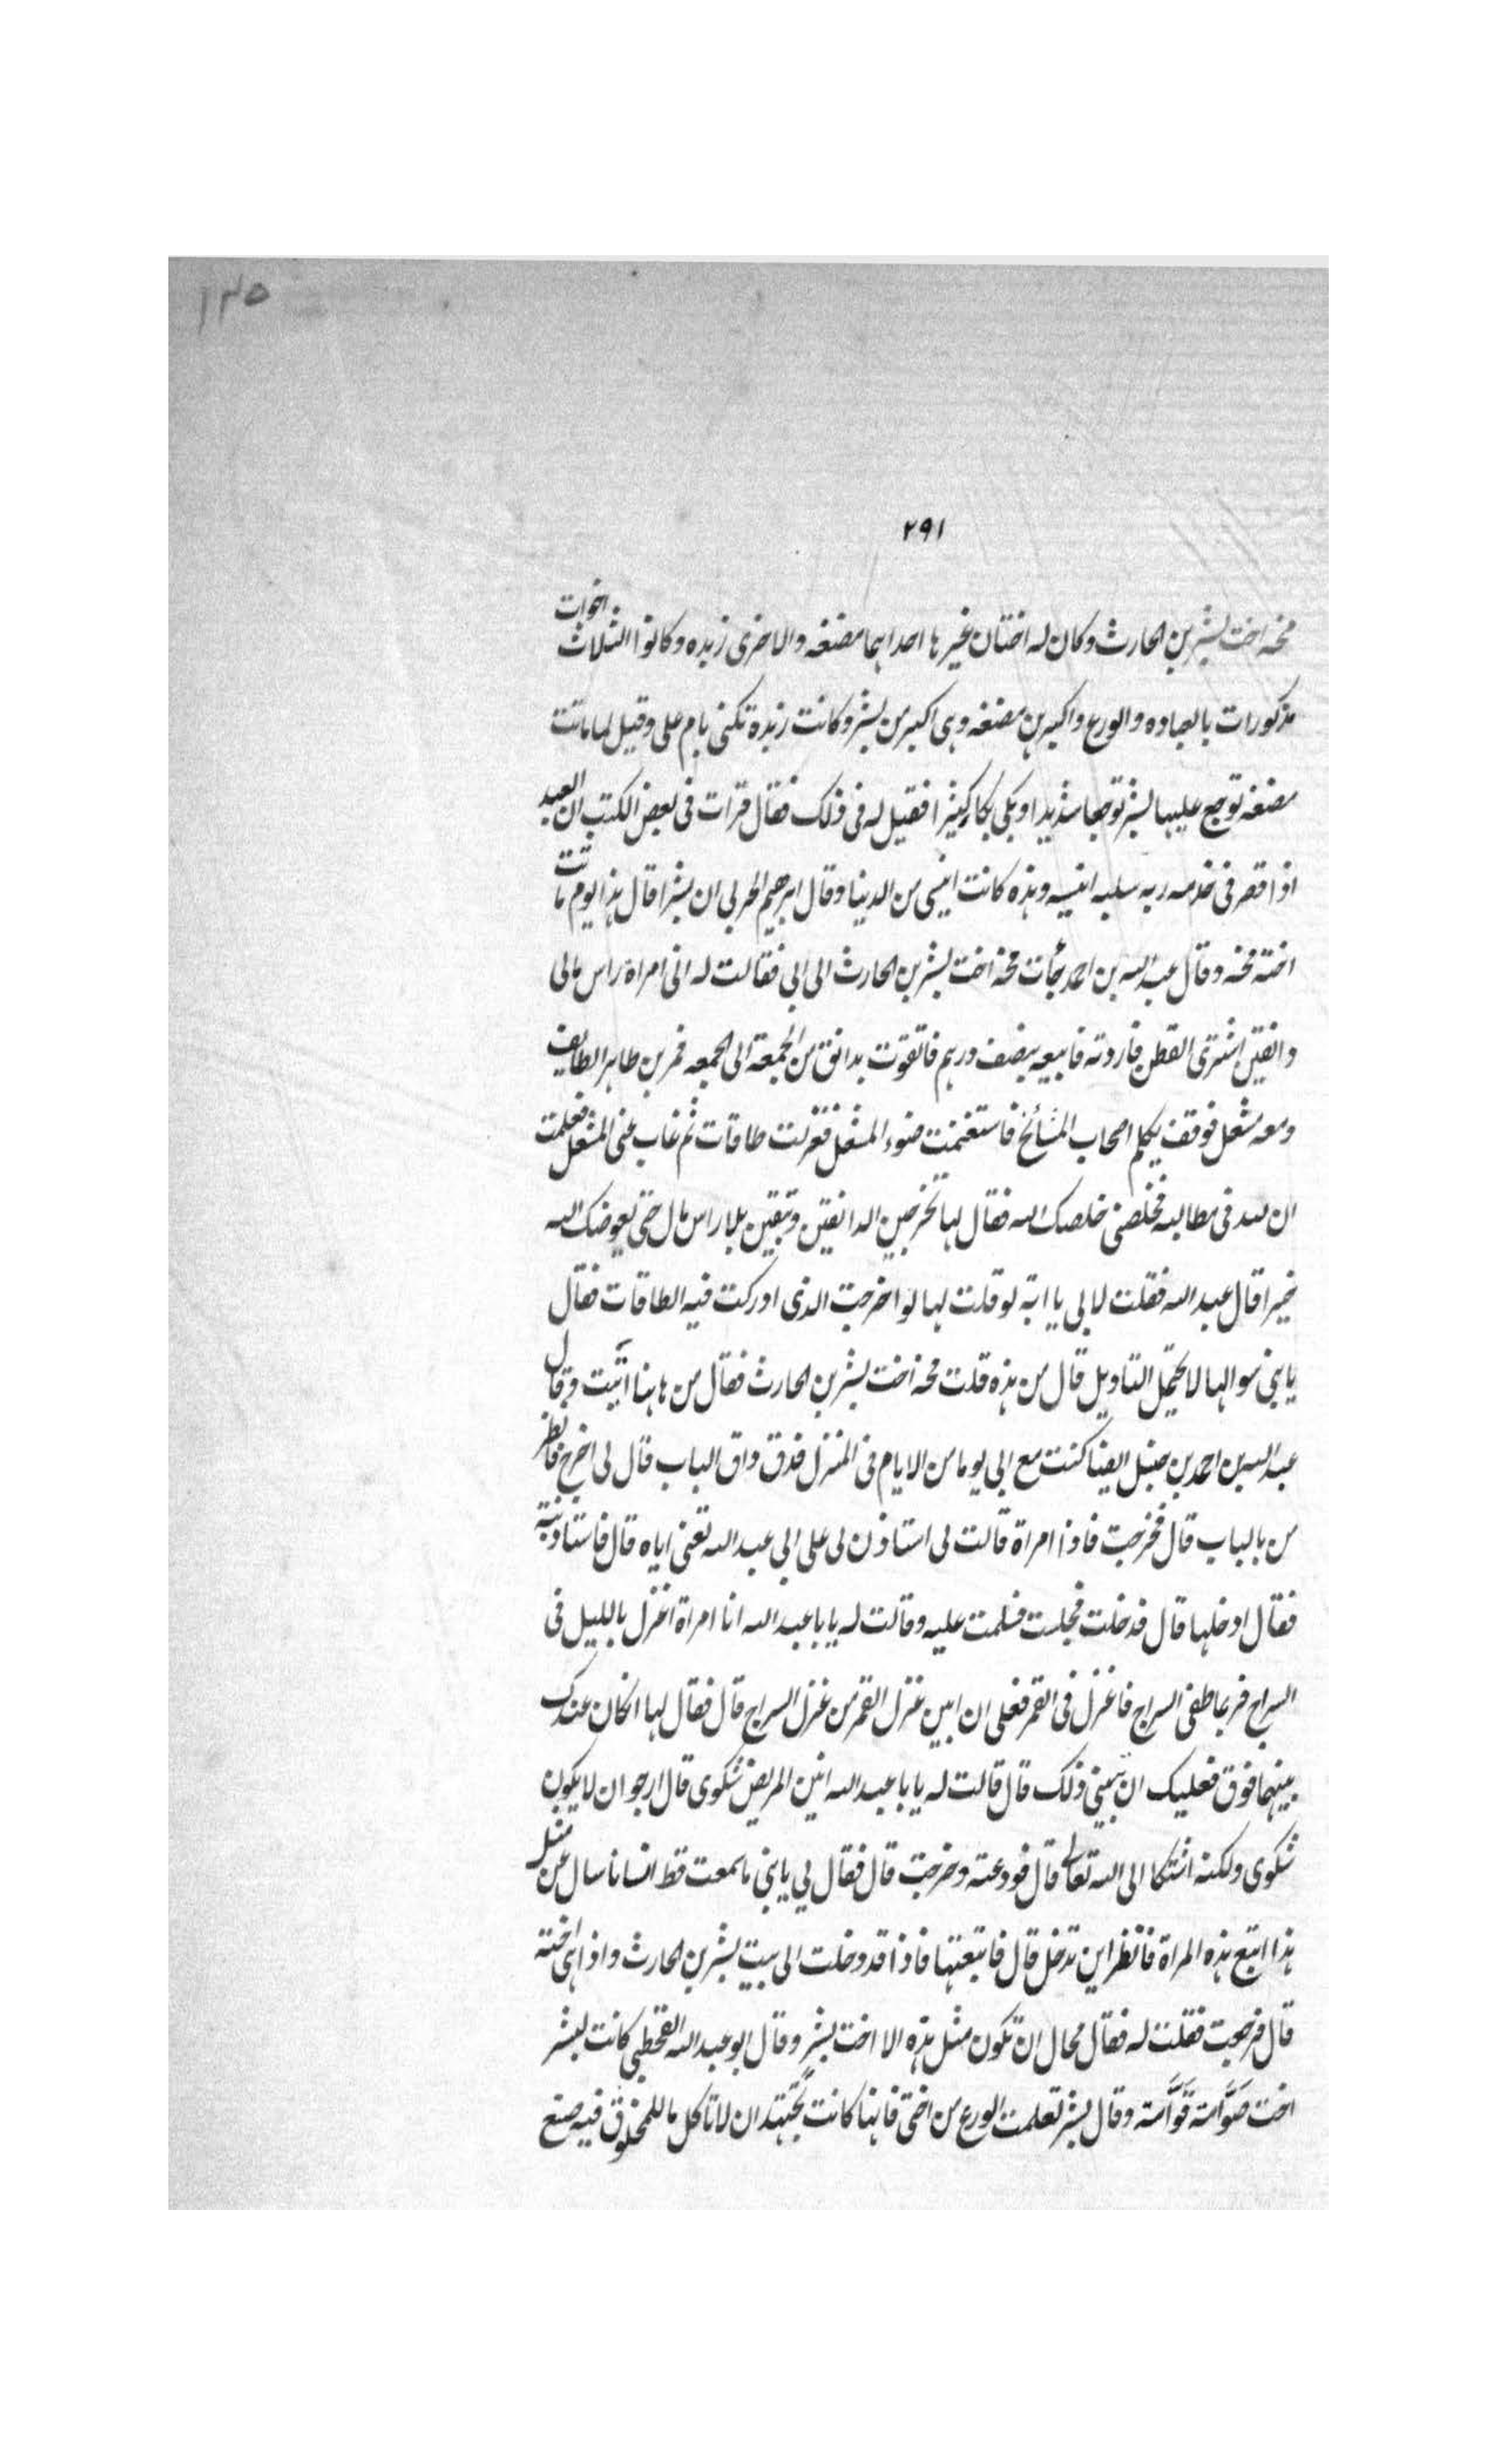 ١٢٥
٢٩١
مخه اخت بشر بن الحارث وكان له اختان غيرها احداهما مضغه والاخرى زبده وكانوا الثلاث اخوات
مذكورات بالعباده والورع واكبرهن مضغه وهى اكبر من بشر وكانت زبدة تكنى بام على وقيل لما ماتت
مضغه توجع عليها بشر توجعا شديدا وبكى بكاء كثيرا فقيل له فى ذلك فقال قرات فى بعض الكتب ان العبد
اذا قصر فى خدمه ربه سلبه انيسه وهذه كانت انيسى من الدنيا وقال ابرهيم الحربي ان بشرا قال هذا يوم ماتت
اخته مخه وقال عبد الله بن احمد جأت مخه اخت بشر بن الحارث الى ابى فقالت له انى امراة راس مالى
دانقين اشترى القطن فاردنه فابيعه بنصف درهم فاتقوت بدانق من الجمعة الى الجمعه فمر بن طاهر الطايف
ومعه مشعل فوقف يكلم اصحاب المشائخ فاستغنمت ضوء المشعل فغزلت طاقات ثم غاب عنى المشعل فعلمت
ان لله فى مطالبه فخلصنى خلصك الله فقال لها تخرجين الدانقين وتبقين بلا راس مال حتى يعوضك الله
خيرا قال عبد الله فقلت لابى يا ابة لو قلت لها لو اخرجت الذى ادركت فيه الطاقات فقال
يا بنى سوالها لا يحتمل التاويل قال من هذه قلت مخه اخت بشر بن الحارث فقال من هاهنا اتيت وقال
عبد الله بن احمد بن حنبل ايضا كنت مع ابى يوما من الايام فى المنزل فدق داق الباب قال لى اخرج فانظر
من بالباب قال فخرجت فاذا امراة قالت لى استاذن لى على ابى عبد الله تعنى اياه قال فاستاذنته
فقال ادخلها قال فدخلت فجلست فسلمت عليه وقالت له يا با عبد الله انا امراة اغزل بالليل فى
السراج فربما طفى السراج فاغزل فى القمر فعلى ان ابين غزل القمر من غزل السراج قال فقال لها ان كان عندك
بينهما فرق فعليك ان تبينى ذلك قال قالت له يا با عبد الله انين المريض شكوى قال ارجو ان لا يكون
شكوى ولكنه اشتكا الى الله تعالى قال فودعته وخرجت قال فقال لي يا بنى ما سمعت قط انسانا سال عن مثل
هذا اتبع هذه المراة فانظر اين تدخل قال فاتبعتها فاذا قد دخلت الى بيت بشر بن الحارث واذا هى اخته
قال فرجعت فقلت له فقال محال ان تكون مثل هذه الا اخت بشر وقال ابو عبد الله القحطبى كانت لبشر
اخت صَوَّامة قَوَّامة وقال بشر تعلمت الورع من اختى فانها كانت تجتهد ان لا تاكل ما للمخلوق فيه صنع